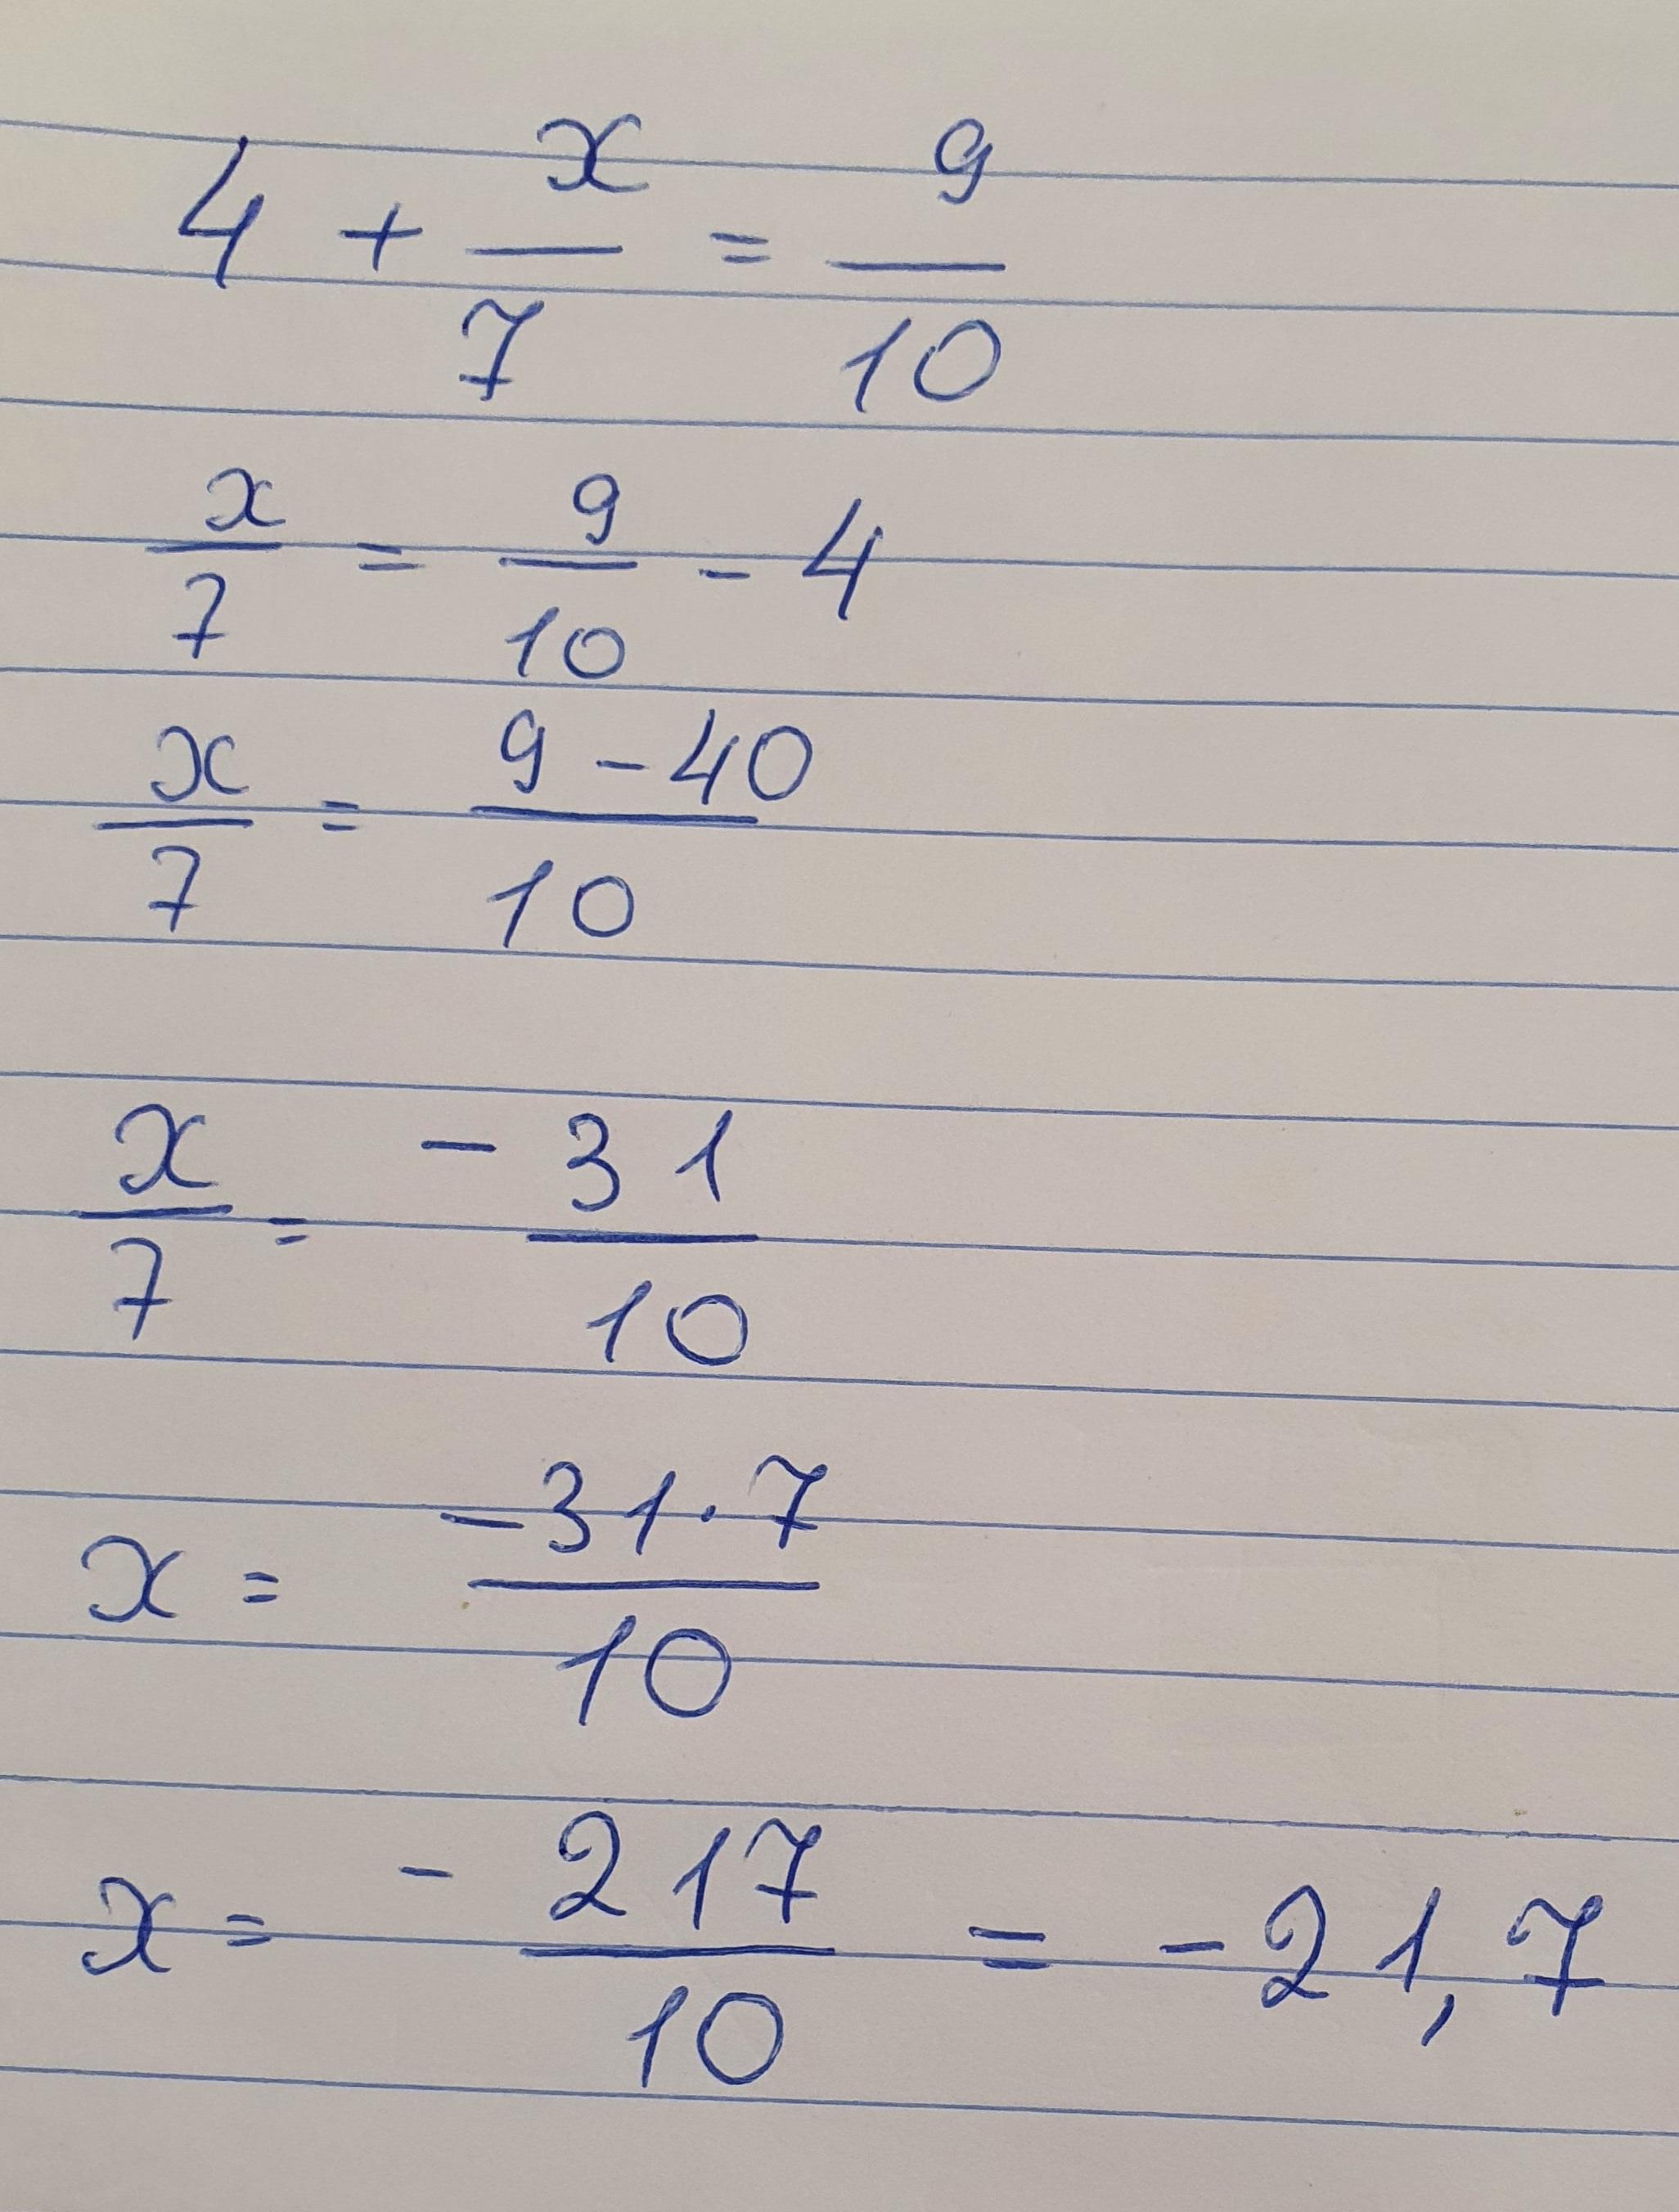 4 + x/7 = 9/10
x/7 = 9/10 - 4
x/7 = (9 - 40)/10
x/7 = - 31/10
x = (-31·7)/10
x = - 217/10 = -21,7